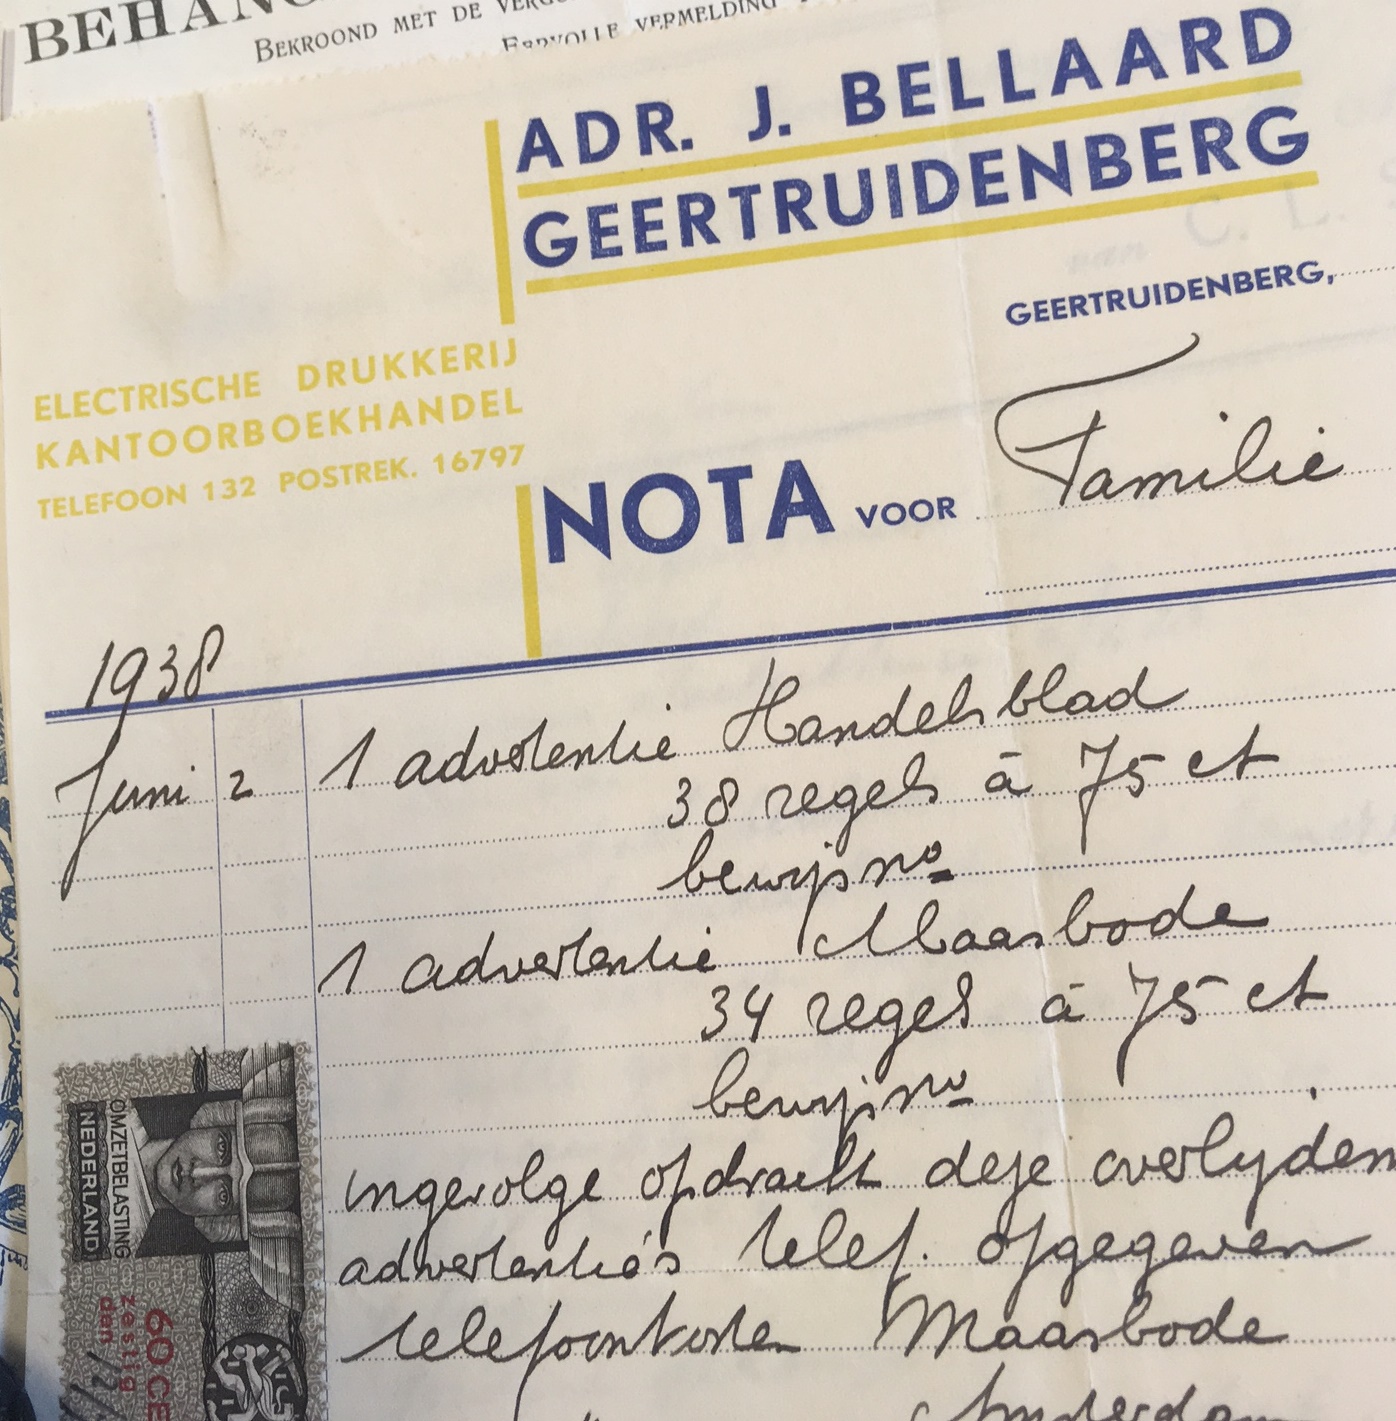 BEHANG
BEKROOND MET DE
EERVOLLE VERMELDING
ADR. J. BELLAARD
GEERTRUIDENBERG
GEERTRUIDENBERG,
ELECTRISCHE DRUKKERIJ
KANTOORBOEKHANDEL
TELEFOON 132 POSTREK. 16797
NOTA VOOR Familie
1938
Juni 2 1 advertentie Handelsblad
38 regels à 75 ct
bewijs no
1 advertentie Maasbode
34 regels à 75 ct
bewijs no
ingevolge opdracht deze overlijden
advertentie's telef. opgegeven
telefoonkosten Maasbode
" Amsterdam
OMZETBELASTING
NEDERLAND
60 CE
zestig